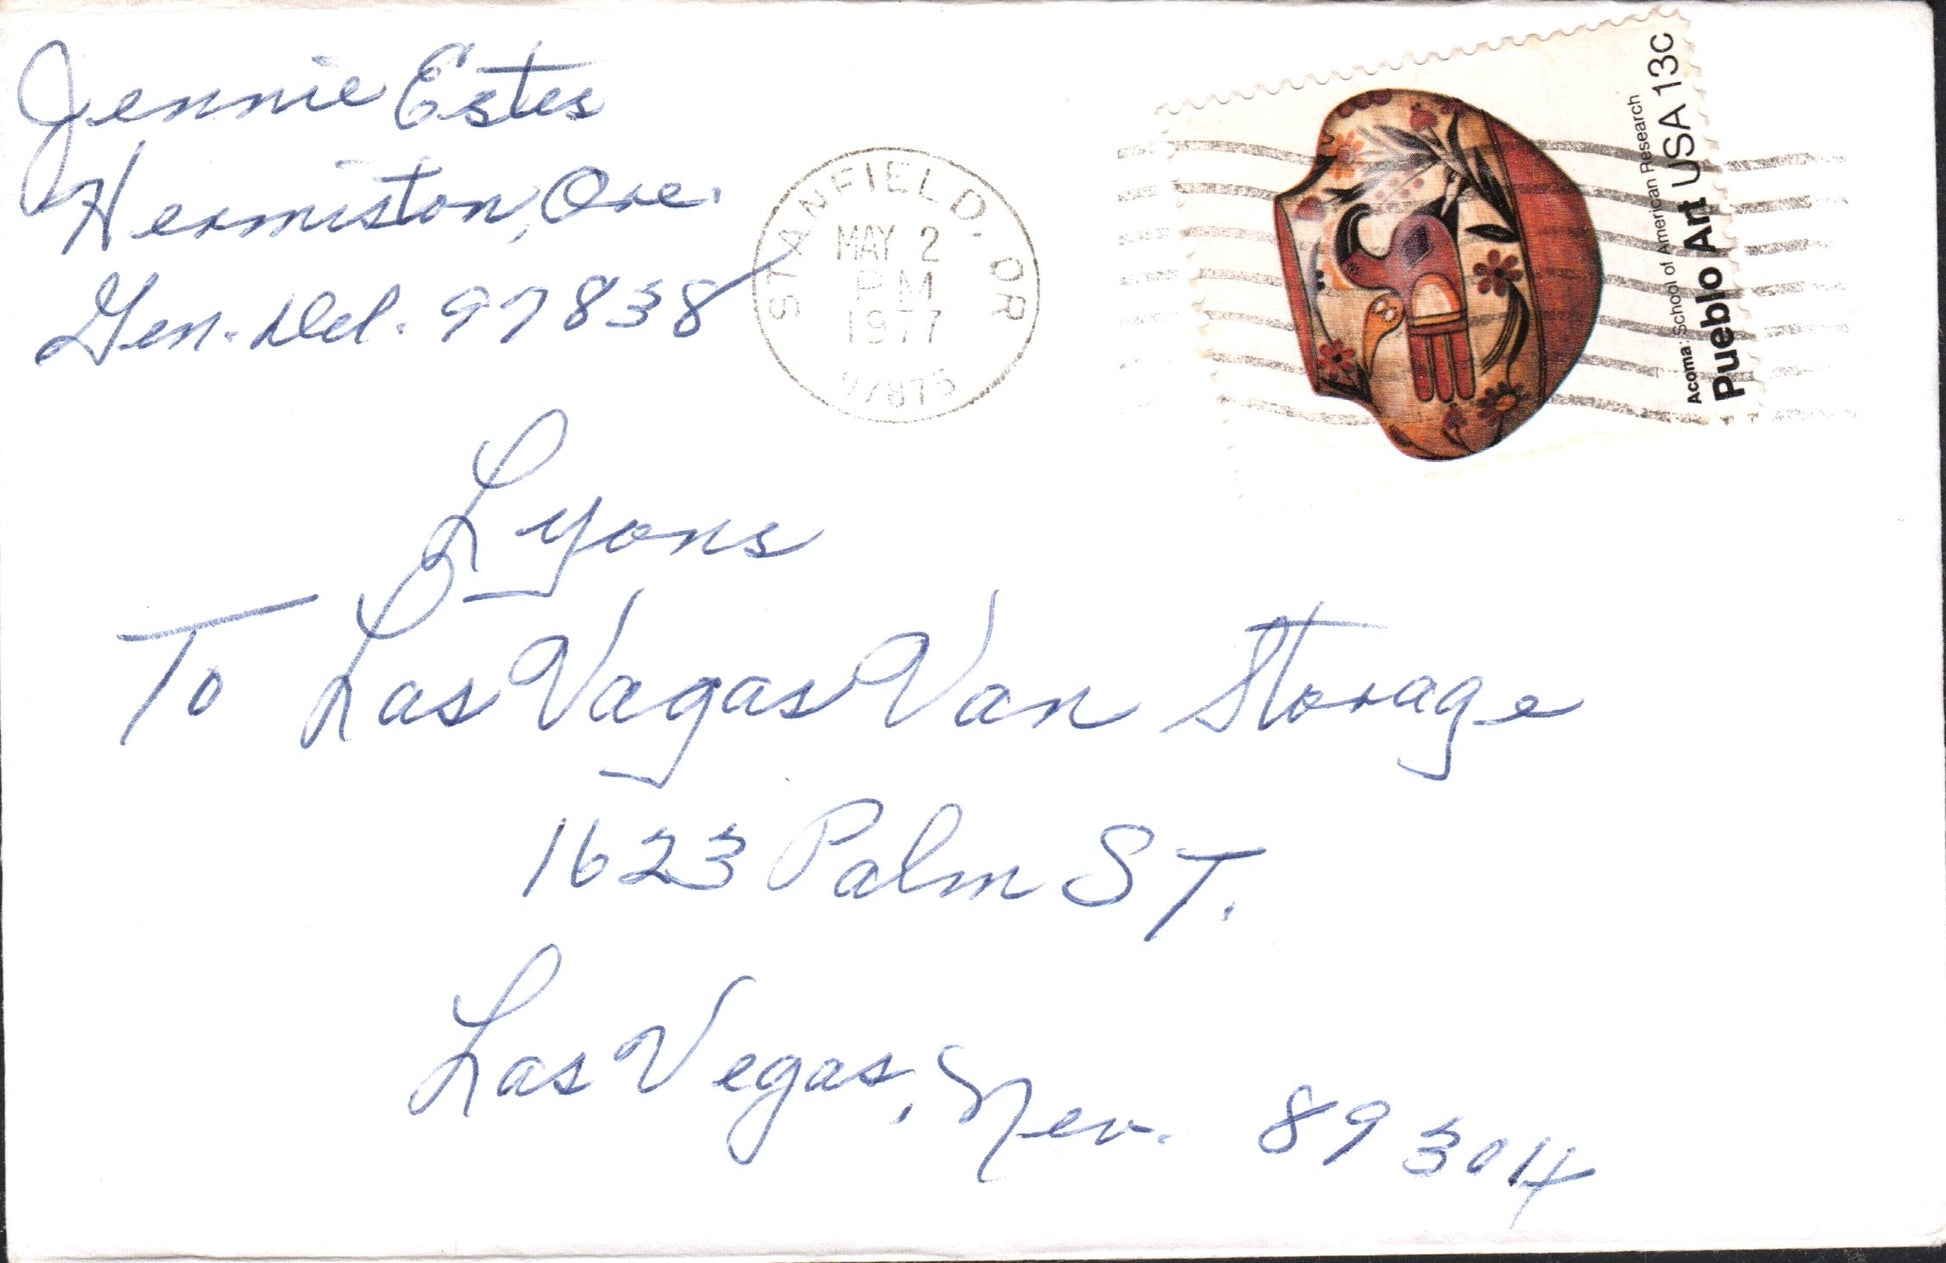 Jennie Estes
Hermiston, Ore.
Gen. Del. 97838
STANFIELD, OR
MAY 2
PM
1977
97875
Acoma: School of American Research
Pueblo Art USA 13c
Lyons
To Las Vagas Van Storage
1623 Palm ST.
Las Vegas, Nev. 89304